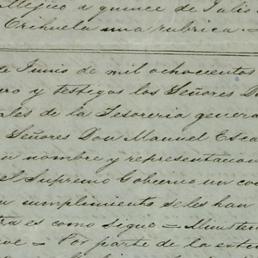 Mejico a quince de Julio
Orihuela una rubrica =
de Junio de mil ochocientos
ero y testigos los Señores D
ales de la Tesoreria genera
Señores Don Manuel Esca
u nombre y representacion
el Supremo Gobierno un co
u cumplimiento se les han
tra es como sigue = Minister
ve = Por parte de la este